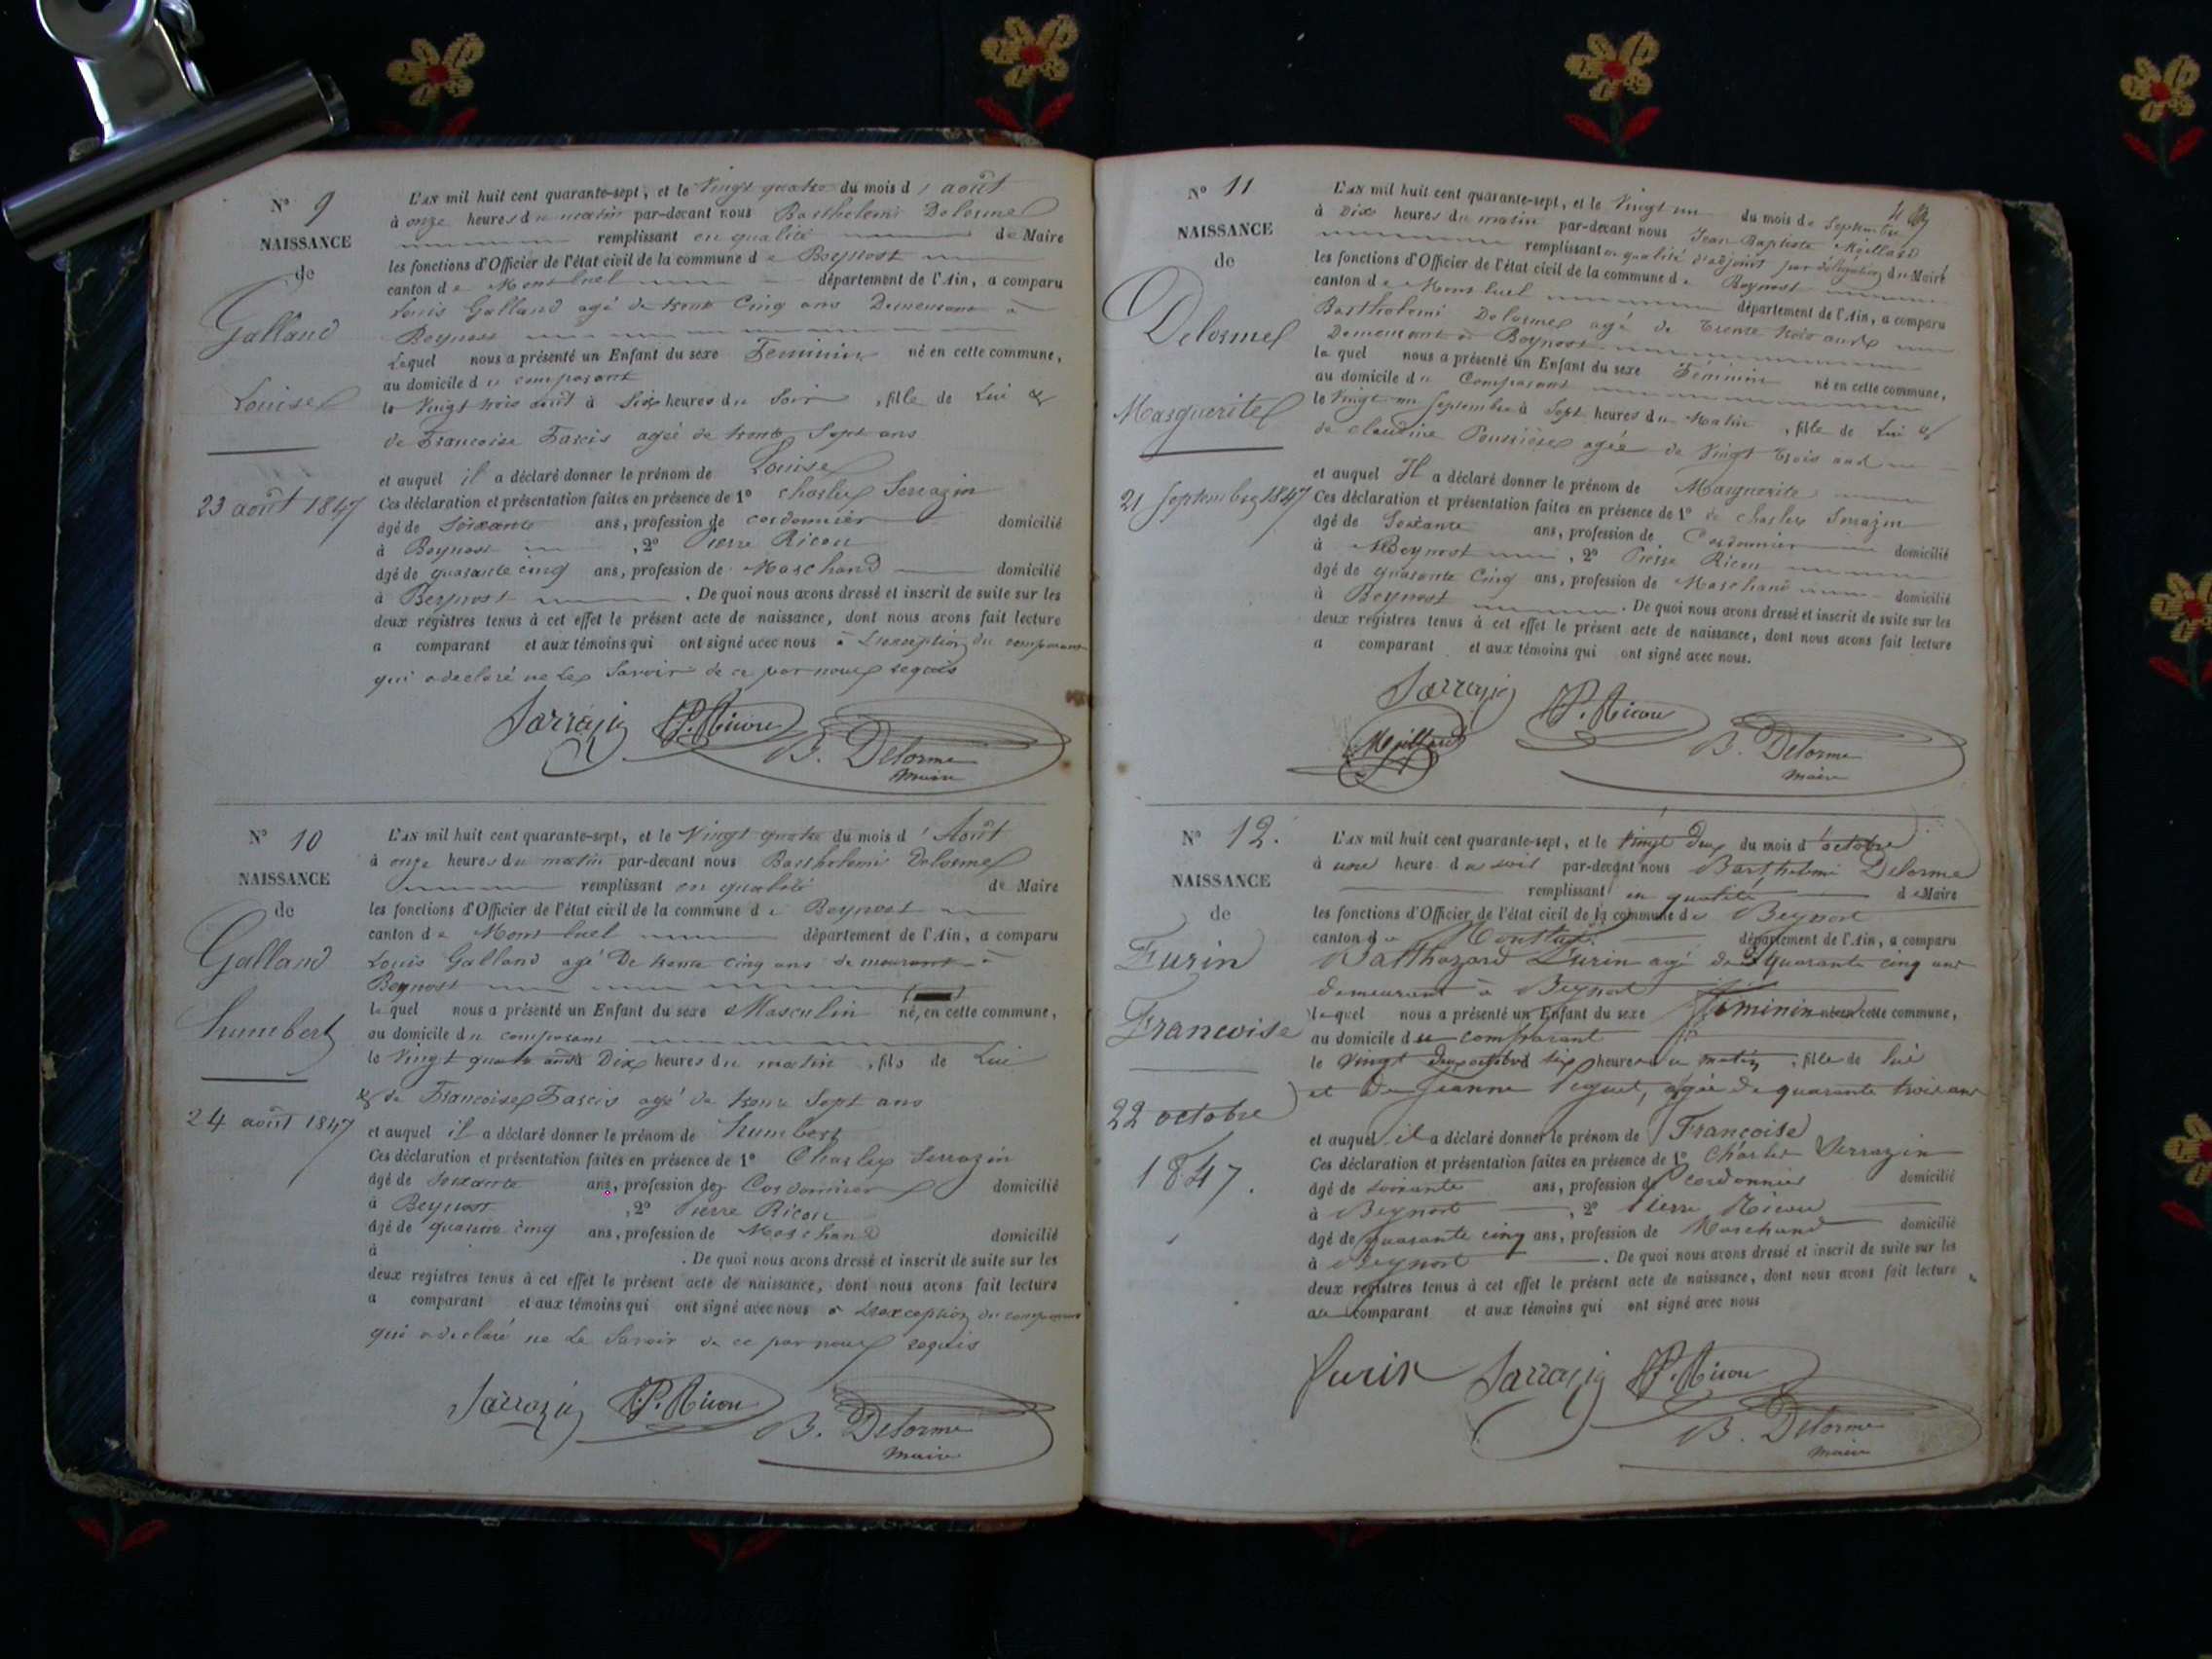 N° 9
NAISSANCE
de
Galland
Louise
23 août 1847
L'AN mil huit cent quarante-sept, et le Vingt quatre du mois d'août
à onze heures du matin par-devant nous Barthelemi Delorme
remplissant en qualité de Maire
les fonctions d'Officier de l'état civil de la commune de Beynost
canton de Montluel département de l'Ain, a comparu
Louis Galland agé de trente Cinq ans Demeurant à
Beynost
Lequel nous a présenté un Enfant du sexe Feminin né en cette commune,
au domicile du comparant
le Vingt trois août à Six heures du Soir, fille de Lui &
de Francoise Farcis agée de trente Sept ans
et auquel il a déclaré donner le prénom de Louise
Ces déclaration et présentation faites en présence de 1° Charles Serrazin
âgé de Soixante ans, profession de cordonnier domicilié
à Beynost, 2° Pierre Ricou
âgé de quarante cinq ans, profession de Marchand domicilié
à Beynost. De quoi nous avons dressé et inscrit de suite sur les
deux registres tenus à cet effet le présent acte de naissance, dont nous avons fait lecture
a comparant et aux témoins qui ont signé avec nous à L'exception du comparant
qui a declaré ne Le Savoir de ce par nous requis
Sarrazin P. Ricou
B. Delorme
Maire
N° 10
NAISSANCE
de
Galland
humbert
24 août 1847
L'AN mil huit cent quarante-sept, et le Vingt quatre du mois d'Août
à onze heures du matin par-devant nous Barthelemi Delorme
remplissant en qualité de Maire
les fonctions d'Officier de l'état civil de la commune de Beynost
canton de Montluel département de l'Ain, a comparu
Louis Galland agé De trente cinq ans demeurant à
Beynost
lequel nous a présenté un Enfant du sexe Masculin né, en cette commune,
au domicile du comparant
le Vingt quatre août à Dix heures du matin, fils de Lui
& de Francoise Farcis agé de trente Sept ans
et auquel il a déclaré donner le prénom de humbert
Ces déclaration et présentation faites en présence de 1° Charles Serrazin
âgé de Soixante ans, profession de Cordonnier domicilié
à Beynost, 2° Pierre Ricou
âgé de quarante cinq ans, profession de Marchand domicilié
à . De quoi nous avons dressé et inscrit de suite sur les
deux registres tenus à cet effet le présent acte de naissance, dont nous avons fait lecture
a comparant et aux témoins qui ont signé avec nous à L'exception du comparant
qui a declaré ne Le Savoir de ce par nous requis
Sarrazin P. Ricou
B. Delorme
Maire
N° 11
NAISSANCE
de
Delorme
Marguerite
21 Septembre 1847
L'AN mil huit cent quarante-sept, et le Vingt un du mois de Septembre
à Dix heures du matin par-devant nous Jean Baptiste Meillard
remplissant en qualité d'adjoint par délégation du Maire
les fonctions d'Officier de l'état civil de la commune de Beynost
canton de Montluel département de l'Ain, a comparu
Barthelemi Delorme agé de trente trois ans
Demeurant à Beynost
lequel nous a présenté un Enfant du sexe Feminin né en cette commune,
au domicile du Comparant
le Vingt un Septembre à Sept heures du Matin, fille de Lui &
de Claudine Poussière agée de Vingt trois ans
et auquel Il a déclaré donner le prénom de Marguerite
Ces déclaration et présentation faites en présence de 1° de Charles Serrazin
âgé de Soixante ans, profession de Cordonnier domicilié
à Beynost, 2° Pierre Ricou
âgé de quarante Cinq ans, profession de Marchand domicilié
à Beynost. De quoi nous avons dressé et inscrit de suite sur les
deux registres tenus à cet effet le présent acte de naissance, dont nous avons fait lecture
a comparant et aux témoins qui ont signé avec nous.
Sarrazin
P. Ricou
Meillard
B. Delorme
Maire
N° 12.
NAISSANCE
de
Furin
Francoise
22 octobre
1847.
L'AN mil huit cent quarante-sept, et le vingt deux du mois d'octobre
à une heure du soir par-devant nous Barthelemi Delorme
remplissant en qualité de Maire
les fonctions d'Officier de l'état civil de la commune de Beynost
canton de Montluel département de l'Ain, a comparu
Balthazard Furin agé de quarante cinq ans
demeurant à Beynost
lequel nous a présenté un Enfant du sexe féminin né en cette commune,
au domicile du comparant
le vingt deux octobre à six heures du matin, fille de lui
et de Jeanne agée de quarante trois ans
et auquel il a déclaré donner le prénom de Francoise
Ces déclaration et présentation faites en présence de 1° Charles Serrazin
âgé de soixante ans, profession de cordonnier domicilié
à Beynost, 2° Pierre Ricou
âgé de quarante cinq ans, profession de Marchand domicilié
à Beynost. De quoi nous avons dressé et inscrit de suite sur les
deux registres tenus à cet effet le présent acte de naissance, dont nous avons fait lecture
au comparant et aux témoins qui ont signé avec nous
furin Sarrazin P. Ricou
B. Delorme
Maire